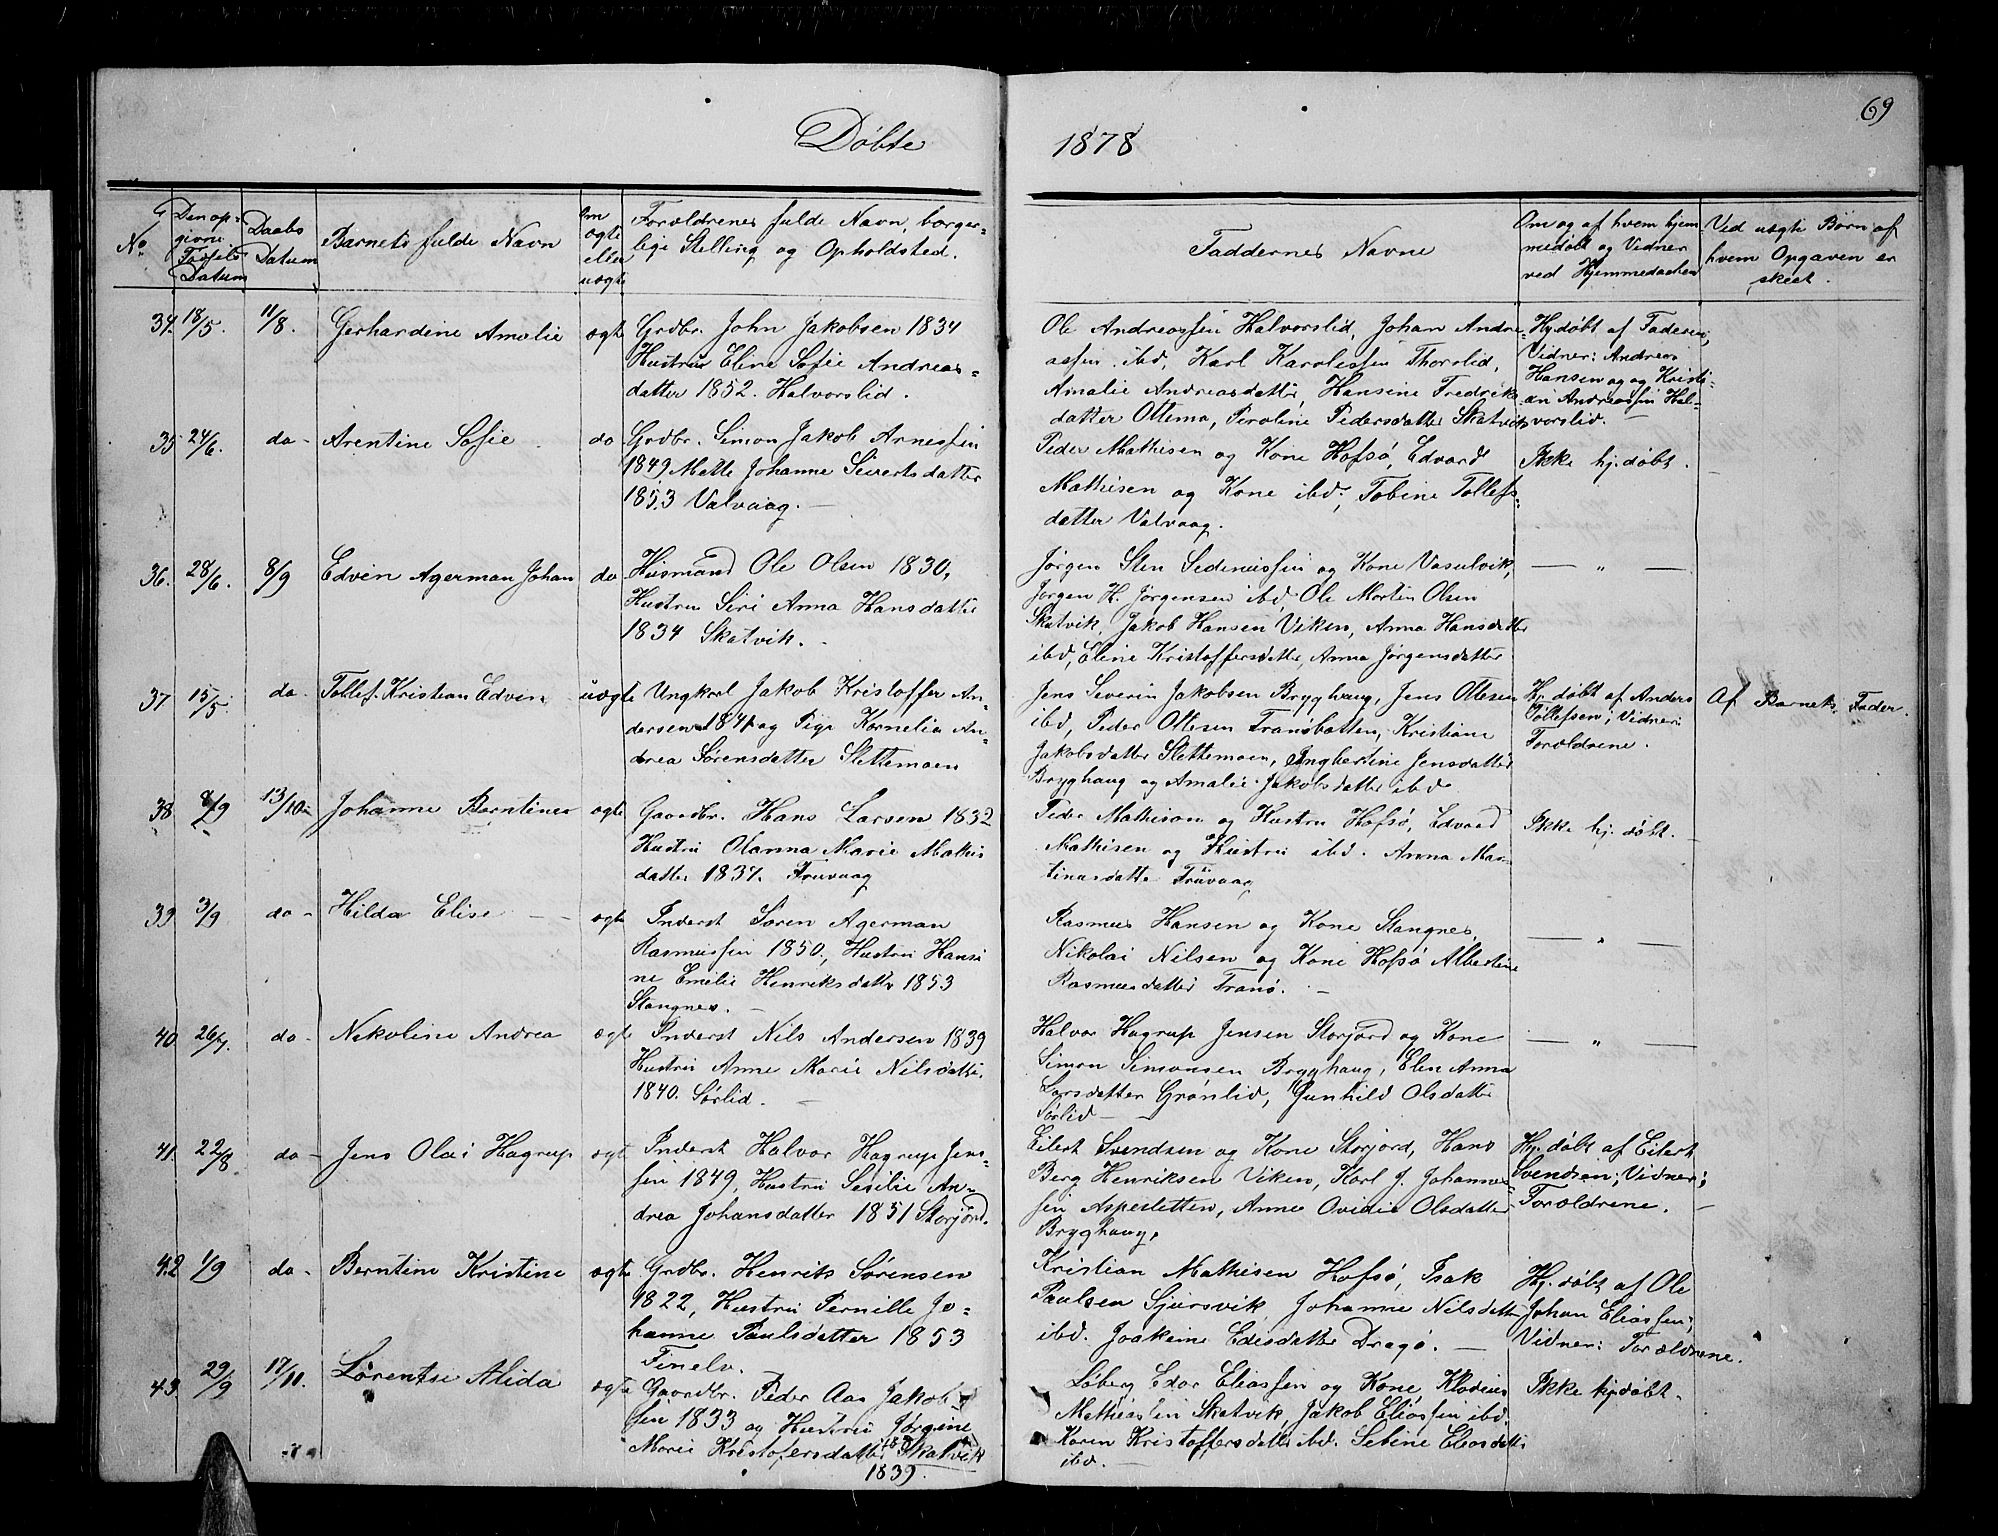 69
Døbte 1878
No
Den op-
givne
Fødsels
Datum
Daabs
Datum
Barnets fulde Navn
Om
ægte
eller
uægte
Forældrenes fulde Navn, borger-
lige Stilling og Opholdsted.
Faddernes Navne
Om og af hvem hjem
medøbt og Vidner
ved Hjemmedaaben
Ved uægte Børn af
hvem Opgaven er
skeet.
34. 18/5. 11/8. Gerhardine Amalie ægte
Grdbr. John Jakobsen 1834
Hustru Eline Sofie Andreas-
datter 1852. Halvorslid.
Ole Andreassen Halvorslid, Johan Andre-
assen ibd, Karl Karolessen Thorslid,
Amalie Andreasdatter, Hansine Fredrik
datter Ottemo, Peroline Pedersdatter Skatvik
Hj.døbt af Faderen,
Vidner: Andreas
Hansen og Kristi-
an Andreassen Hal-
vorslid.
35 24/6. do- Arentine Sofie do
Grdbr. Simon Jakob Arnessen
1849, Mette Johanne Sivertsdatter
1853 Valvaag. -
Peder Mathisen og Kone Hofsø, Edvard
Mathisen og Kone ibd; Tobine Tollefs-
datter Valvaag.
Ikke hj.døbt.
36. 28/6. 8/9 Edvin Agerman Johan do
Husmand Ole Olsen 1830,
Hustru Siri Anna Hansdatter
1834 Skatvik. -
Jørgen Sten Sedeniussen og Kone Vasulvik,
Jørgen H. Jørgensen ibd, Ole Morten Olsen
Skatvik, Jakob Hansen Viken, Anna Hansdatter
ibd, Eline Kristoffersdatter, Anna Jørgensdatter
— „ —
37 15/5. do- Tollef Kristian Edvin uægte
Ungkarl Jakob Kristoffer An-
dersen 1841 og Pige Kornelia An-
drea Sørensdatter Slettemoen
Jens Severin Jakobsen Brygghaug, Jens Ottesen
ibd, Peder Ottesen Tranøbotten, Kristiane
Jakobsdatter Slettemoen, Ingbertine Jensdatter
Brygghaug og Amalie Jakobsdatter ibd.
Hj. døbt af Anders
Tollefsen; Vidner:
Forældrene.
Af Barnets Fader.
38 8/9 13/10- Johanne Berntine ægte
Gaardbr. Hans Larsen 1832
Hustru Olanna Marie Mathis
datter 1837. Truvaag
Peder Mathisen og Hustru Hofsø, Edvard
Mathisen og Hustru ibd. Anna Mar-
tinusdatter Truvaag
Ikke hj. døbt.
39 3/9 do- Hilda Elise - - ægte
Inderst Søren Agerman
Rasmussen 1850, Hustru Hansi
ne Emilie Henriksdatter 1853
Stangnes. -
Rasmus Hansen og Kone Stangnes,
Nikolai Nilsen og Kone Hofsø Albertine
Rasmusdatter Tranø. -
— „ —
40 26/7. do- Nikoline Andrea ægte
Inderst Nils Andersen 1839
Hustru Anne Marie Nilsdatter
1840. Sørlid. -
Halvor Hagrup Jensen Storjord og Kone
Simon Simonsen Brygghaug, Elen Anna
Larsdatter Grønlid, Gunhild Olsdatter
Sørlid -
— „ —
41. 22/8 do- Jens Olai Hagrup ægt
Inderst Halvor Hagrup Jens-
sen 1849, Hustru Sesilie An-
drea Johansdatter 1851 Storjord.
Eilert Svendsen og Kone Storjord, Hans
Berg Henriksen Viken, Karl J. Johannes-
sen Aspesletten, Anne Ovidie Olsdatter
Brygghaug,
Hj. døbt af Eilert
Svendsen; Vidner:
Forældrene.
42 1/9 do- Berntine Kristine ægte
Grdbr. Henrik Sørensen
1822, Hustru Pernille Jo-
hanne Paulsdatter 1853
Finelv. -
Kristian Mathisen Hofsø, Isak
Paulsen Sjursvik, Johanne Nilsdatter
ibd. Joakime Edisdatter Dragø. -
Hj. døbt af Ole
Johan Eliassen;
Vidner: Forældrene.
43. 29/9 17/11. Lorentse Alida ægte
Gaardbr. Peder Aas Jakob-
sen 1833 og Hustru Jørgine
Marie Kristoffersdatter Skatvik
1839.
Løberg Edor Eliassen og Kone, Klodius
Mathiassen Skatvik, Jakob Eliassen ibd.
Karen Kristoffersdatter ibd. Sebine Eliasdatter
ibd. -
Ikke hj.døbt.